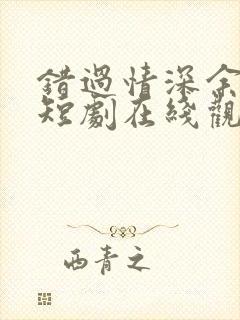 錯過情深余
短劇在綫觀
西青之